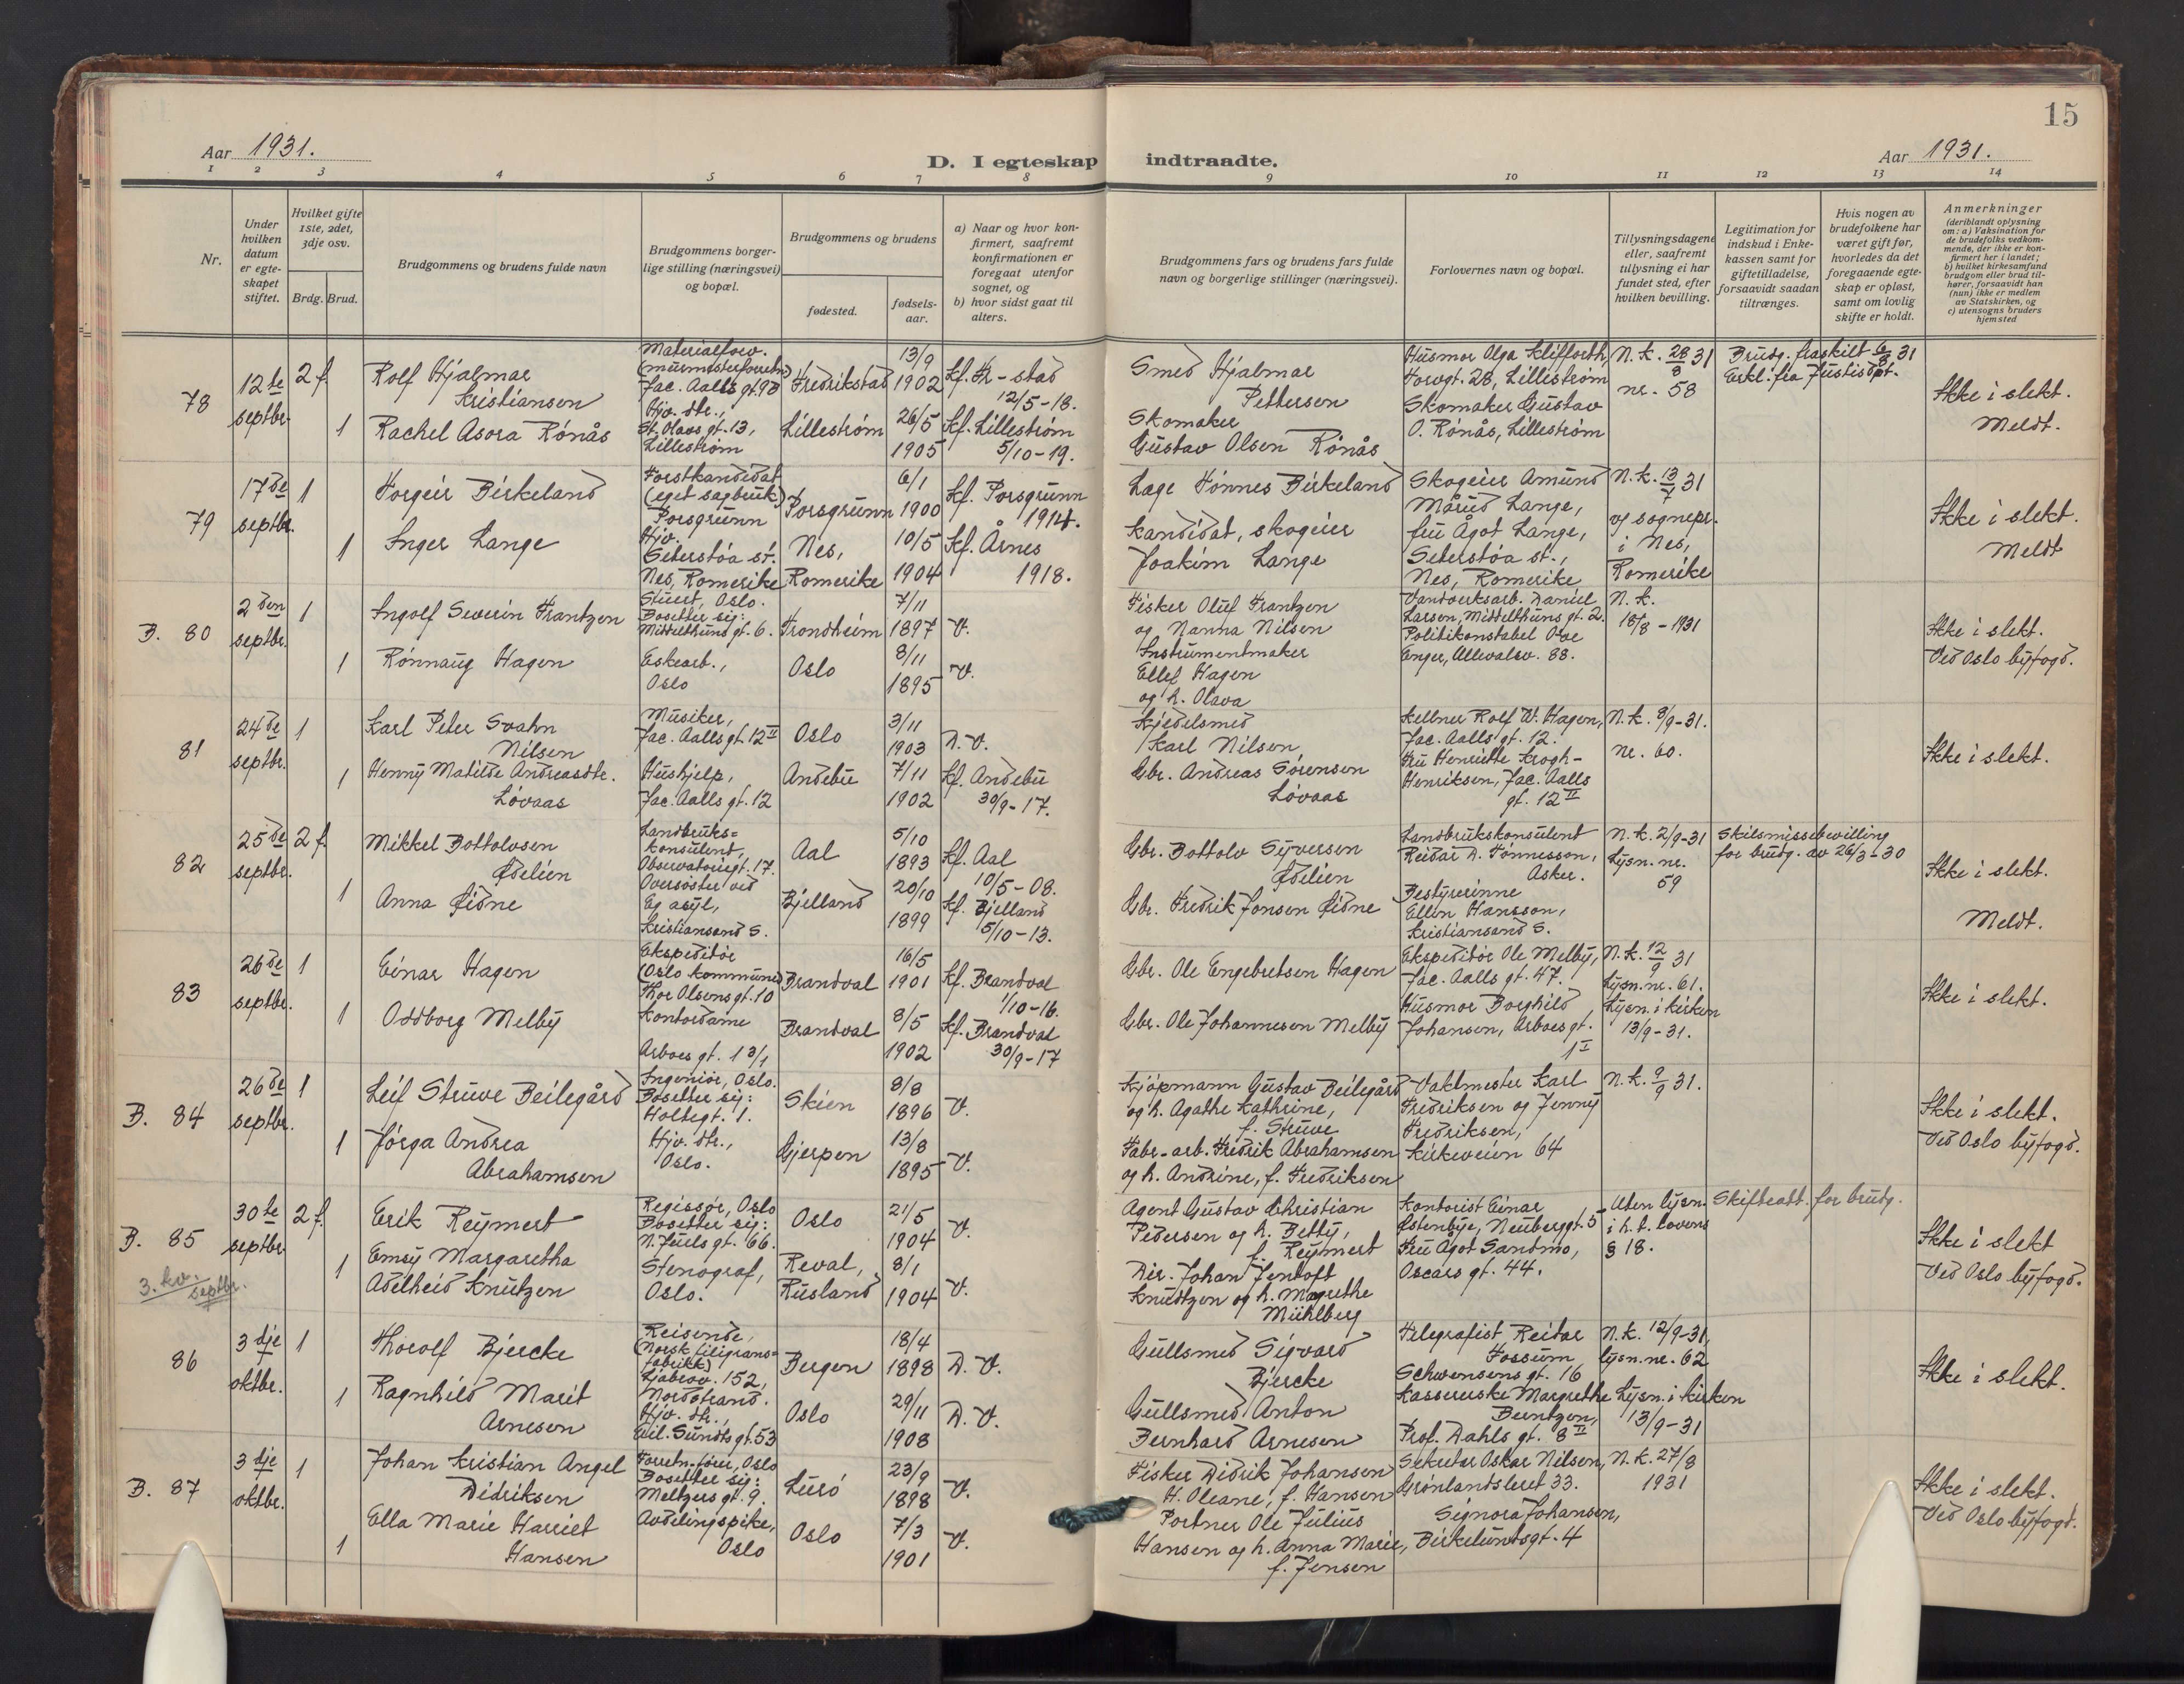 15
Aar 1931.
D. I egteskap indtraadte.
Aar 1931.
1 2 3 4 5 6 7 8 9 10 11 12 13 14
Nr.
Under hvilken datum er egte-skapet stiftet.
Hvilket gifte 1ste, 2det, 3dje osv.
Brdg. Brud.
Brudgommens og brudens fulde navn
Brudgommens borger-lige stilling (næringsvei) og bopæl.
Brudgommens og brudens
fødested.
fødsels-aar.
a) Naar og hvor kon-firmert, saafremt konfirmationen er foregaat utenfor sognet, og
b) hvor sidst gaat til alters.
Brudgommens fars og brudens fars fulde navn og borgerlige stillinger (næringsvei).
Forlovernes navn og bopæl.
Tillysningsdagene eller, saafremt tullysning ei har fundet sted, efter hvilken bevilling.
Legitimation for indskud i Enke-kassen samt for giftetilladelse, forsaavidt saadan tiltrænges.
Hvis nogen av brudefolkene har været gift før, hvorledes da det foregaaende egte-skap er opløst, samt om lovlig skifte er holdt.
Anmerkninger
(deriblandt oplysning om: a) Vaksination for de brudefolks vedkom-mende, der ikke er kon-firmert her i landet;
b) hvilket kirkesamfund brudgom eller brud til-hører, forsaavidt han (hun) ikke er medlem av Statskirken, og
c) utensogns bruders hjemsted
78
12te septbr.
2 f.
Rolf Hjalmar
Kristiansen
Materialforv.
(murmesterforretn)
Jac. Aalls gt. 9B
Fredrikstad
13/9
1902
Kf. Fr-stad
12/5-18.
Smed Hjalmar
Pettersen
Husmor Olga Klifforth,
Torvgt. 28, Lillestrøm
N. k. 28/8 31
nr. 58
Brudg. fraskilt 6/8 31
Erkl. fra Justisdpt.
Ikke i slekt.
Meldt.
1
Rachel Asora Rønås
Hjv. dtr.,
St. Olavs gt. 13,
Lillestrøm
Lillestrøm
26/5
1905
Kf. Lillestrøm
5/10-19.
Skomaker
Gustav Olsen Rønås
Skomaker Gustav
O. Rønås, Lillestrøm
79
17de septbr.
1
Torgeir Birkeland
Forstkandidat
(eget sagbruk)
Porsgrunn
Porsgrunn
6/1
1900
Kf. Porsgrunn
1914.
Læge Tønnes Birkeland
Skogeier Amund
Mårud Lange,
N. k. 13/7 31
v/ sognepr.
i Nes,
Romerike
Ikke i slekt.
Meldt
1
Inger Lange
Hjv.
Seterstøa st.
Nes, Romerike
Nes,
Romerike
10/5
1904
Kf. Årnes
1918.
Kandidat, skogeier
Joakim Lange
fru Ågot Lange,
Seterstøa st.,
Nes, Romerike
B. 80
2den septbr.
1
Ingolf Severin Frantzen
Stuert, Oslo.
Bosetter sig:
Middelthuns gt. 6.
Trondheim
7/11
1897
V.
Fisker Oluf Frantzen
og Nanna Nilsen
Vandverksarb. Daniel
Larsen, Middelthuns gt. 2.
N. k.
18/8-1931
Ikke i slekt.
Ved Oslo byfogd.
1
Rønnaug Hagen
Eskearb.,
Oslo
Oslo
8/11
1895
V.
Instrumentmaker
Ellef Hagen
og h. Olava
Politikonstabel Ove
Enger, Ullevalsv. 88.
81
24de septbr.
1
Karl Peter Svahn
Nilsen
Musiker,
Jac. Aalls gt. 12 II
Oslo
3/11
1903
D. V.
Kjedelsmed
Karl Nilsen
Kellner Rolf W. Hagen,
Jac. Aalls gt. 12.
N. k. 8/9-31.
nr. 60.
Ikke i slekt.
1
Henny Matilde Andreasdtr.
Løvaas
Hushjelp,
Jac. Aalls gt. 12
Andebu
7/11
1902
Kf. Andebu
30/9-17.
Gbr. Andreas Sørensen
Løvaas
Fru Henriette Krogh-
Henriksen, Jac. Aalls
gt. 12 II
82
25de septbr.
2 f.
Mikkel Bottolvsen
Ødelien
Landbruks=
konsulent,
Observatoriegt. 17.
Aal
5/10
1893
Kf. Aal
10/5-08.
Gbr. Bottolv Syversen
Ødelien
Landbrukskonsulent
Reidar D. Tønnesson,
Asker.
N. k. 2/9-31
Lysn. nr.
59
Skilsmissebevilling
for brudg. av 26/3-30
Ikke i slekt.
Meldt.
1
Anna Øidne
Oversøster ved
Eg asyl,
Kristiansand S.
Bjelland
20/10
1899
Kf. Bjelland
5/10-13.
Gbr. Fredrik Jonsen Øidne
Bestyrerinne
Ellen Hansson,
Kristiansand S.
83
26de septbr.
1
Einar Hagen
Ekspeditør
(Oslo kommune)
Thor Olsens gt. 10
Brandval
16/5
1901
Kf. Brandval
1/10-16.
Gbr. Ole Engebretsen Hagen
Ekspeditør Ole Melby,
Jac. Aalls gt. 47.
N. k. 12/9 31
Lysn. nr. 61.
Lysn. i kirken
13/9-31.
Ikke i slekt.
1
Oddborg Melby
Kontordame
Arboes gt. 1 3/1
Brandval
8/5
1902
Kf. Brandval
30/9-17
Gbr. Ole Johannesen Melby
Husmor Borghild
Johansen, Arboes gt.
1 I
B. 84
26de septbr.
1
Leif Struve Beilegård
Ingeniør, Oslo.
Bosetter sig:
Holtegt. 1.
Skien
8/8
1896
V.
Kjøpmann Gustav Beilegård
og h. Agathe Kathrine,
f. Struve
Vaktmester Karl
Fredriksen og Jenny
Fredriksen,
Kirkeveien 64
N. k. 9/9 31.
Ikke i slekt.
Ved Oslo byfogd.
1
Jørga Andrea
Abrahamsen
Hjv. dtr.,
Oslo.
Gjerpen
13/8
1895
V.
Fabr-arb. Fredrik Abrahamsen
og h. Andrine, f. Fredriksen
B. 85
30te septbr.
2 f.
Erik Reymert
Regissør, Oslo
Bosetter sig:
N. Juels gt. 66.
Oslo
21/5
1904
V.
Agent Gustav Christian
Pedersen og h. Betty,
f. Reymert
Kontorist Einar
Østenbye, Neuberggt. 5
Uten lysn.
i h. t. lovens
§ 18.
Skifteatt. for brudg.
Ikke i slekt
Ved Oslo byfogd.
3. kv. septbr.
1
Emsy Margaretha
Adelheid Knutzen
Stenograf,
Oslo.
Reval,
Rusland
8/1
1904
V.
Dir. Johan Jentoft
Knudtzen og h. Magrethe
Mühlberg
Fru Ågot Sandmo,
Oscars gt. 44.
86
3dje oktbr.
1
Thorolf Bjercke
Reisende,
(Norsk filigrans=
fabrikk)
Ljabrov. 152,
Nordstrand.
Bergen
18/4
1898
D. V.
Gullsmed Sigvard
Bjercke
Telegrafist Reidar
Fossum
Schwensens gt. 16
N. k. 12/9-31,
lysn. nr. 62
Lysn. i kirken
13/9-31
Ikke i slekt.
1
Ragnhild Marit
Arnesen
Hjv. dtr.,
Eil. Sundts gt. 53
Oslo
29/11
1908
D. V.
Gullsmed Anton
Bernhard Arnesen
Kassererske Margrethe
Berntzen,
Prof. Dahls gt. 8 II
B. 87
3dje oktbr.
1
Johan Kristian Angel
Didriksen
Forretn.fører, Oslo
Bosetter sig:
Meltzers gt. 9.
Lurø
23/9
1898
V.
Fisker Didrik Johansen
H. Oleane, f. Hansen
Sekretær Oskar Nilsen,
Grønlandsleret 33.
N. k. 27/8
1931
Ikke i slekt.
Ved Oslo byfogd.
1
Ella Marie Harriet
Hansen
Avdelingspike,
Oslo
Oslo
7/3
1901
V.
Portner Ole Julius
Hansen og h. Anna Marie,
f. Jensen
Signora Johansen,
Birkelundsgt. 4